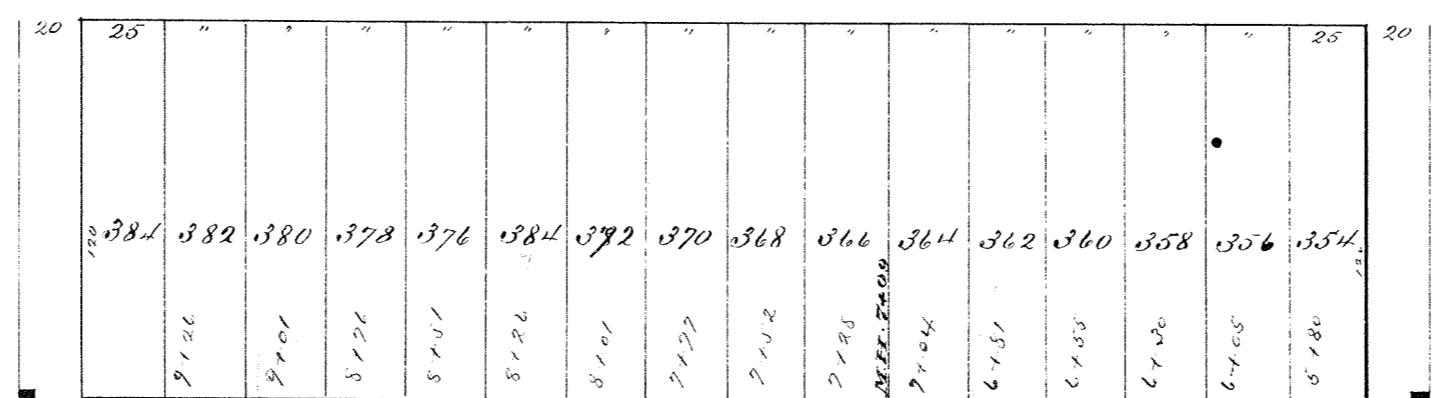 20 25 " " " " " " " " " " " " " " 25 20
120 384 382 380 378 376 384 372 370 368 366 364 362 360 358 356 354 120
9+26 9+01 8+76 8+51 8+26 8+01 7+77 7+52 7+28 M.H. 7+09 7+04 6+81 6+55 6+30 6+05 5+80